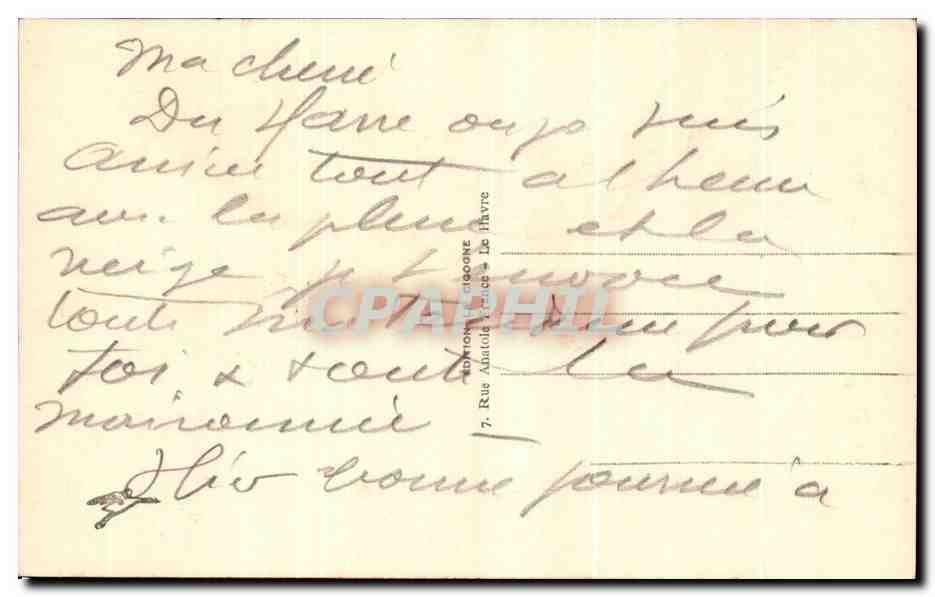 Ma cheri
Du Havre ou je suis
arrivée tout a l heure
avec la pluie et la
neige je t envoie
toute pour
toi & toute la
maisonnée
bonne journée à
EDITION LA CIGOGNE
7. Rue Anatole France - Le Havre
CPAPHIL